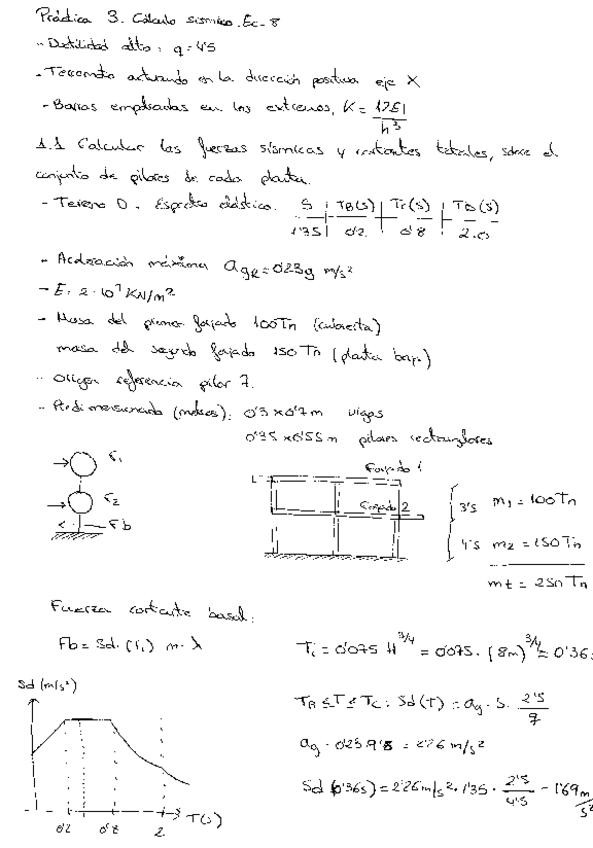 Práctica 3. Cálculo sísmico. Ec-8
- Ductilidad alta: q = 4'5
- Terremoto actuando en la dirección positiva eje X
- Barras empotradas en los extremos, K = 12EI / h³
1.1 Calcular las fuerzas sísmicas y cortantes totales, sobre el
conjunto de pilares de cada planta.
- Terreno D. Espectro elástico. S | TB(s) | Tc(s) | TD(s)
1'35 | 0'2 | 0'8 | 2.0
- Aceleración máxima agR = 0'23g m/s²
- E: 2·10⁷ KN/m²
- Masa del primer forjado 100Tn (cubierta)
masa del segundo forjado 150Tn (planta baja)
- Origen referencia pilar 7.
- Predimensionado (metros): 0'3 x 0'7m vigas
0'35 x 0'55m pilares rectangulares
F1
F2
Fb
Forjado 1
Forjado 2
3's m1 = 100Tn
4's m2 = 150Tn
mt = 250Tn
Fuerza cortante basal:
Fb = Sd·(T1) m·λ
Ti = 0'075 H^3/4 = 0'075·(8m)^3/4 = 0'36s
Sd (m/s²)
TB ≤ T ≤ Tc: Sd(T) = ag·S·2'5/q
ag·0'23·9'8 = 2'26 m/s²
Sd(0'36s) = 2'26m/s²·1'35·2'5/4'5 = 1'69 m/s²
0'2 0'8 2 T(s)